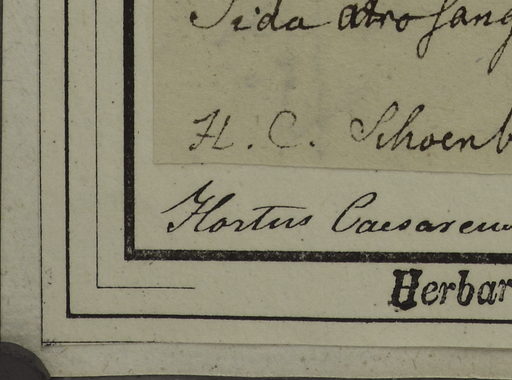 Sida atrosang
H. C. Schoenb
Hortus Caesareu
Herbar